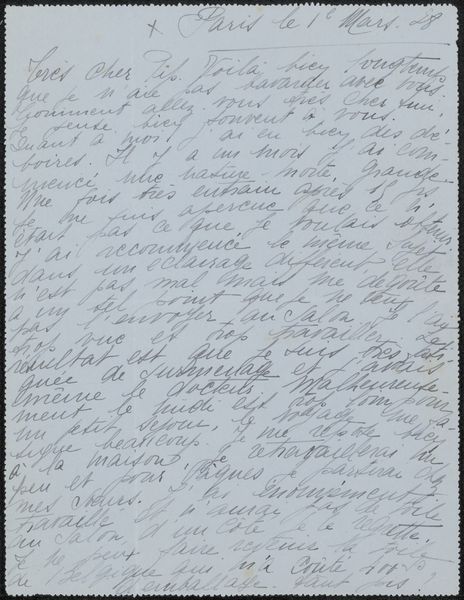 x Paris le 1e Mars. 28
Très cher Pif. Voilà bien longtemps
que je n'aie pas bavarder avec vous.
Comment allez vous très cher ami,
je pense bien souvent à vous.
Quant à moi! j'ai eu bien des dé-
boires. Il y a un mois j'ai com-
mencé une nature morte, grande.
Une fois très entrain après
je me suis aperçue que ce n'
était pas ce que je voulais obtenir
J'ai recommencé le même sujet
dans un éclairage différent elle
n'est pas mal mais me dégoûte
à un tel point que je ne veux
pas l'envoyer au Salon. Je l'ai
trop vue et trop travailler. Le
résultat est que je suis très fati-
guée de surmenage et
le docteur. Malheureuse-
ment le midi est trop loin pour
un petit séjour, le voyage me fa-
tigue beaucoup. Je me repose bien
à la maison, je retravaillerai un
peu et pour Pâques je partirai chez
mes sœurs. J'ai énormément
travaillé et n'aurai pas de toile
au Salon d'un côté je le regrette.
Je ne peux faire revenir la toile
de Belgique qui m'a coûté
d'emballage. Tant pis!